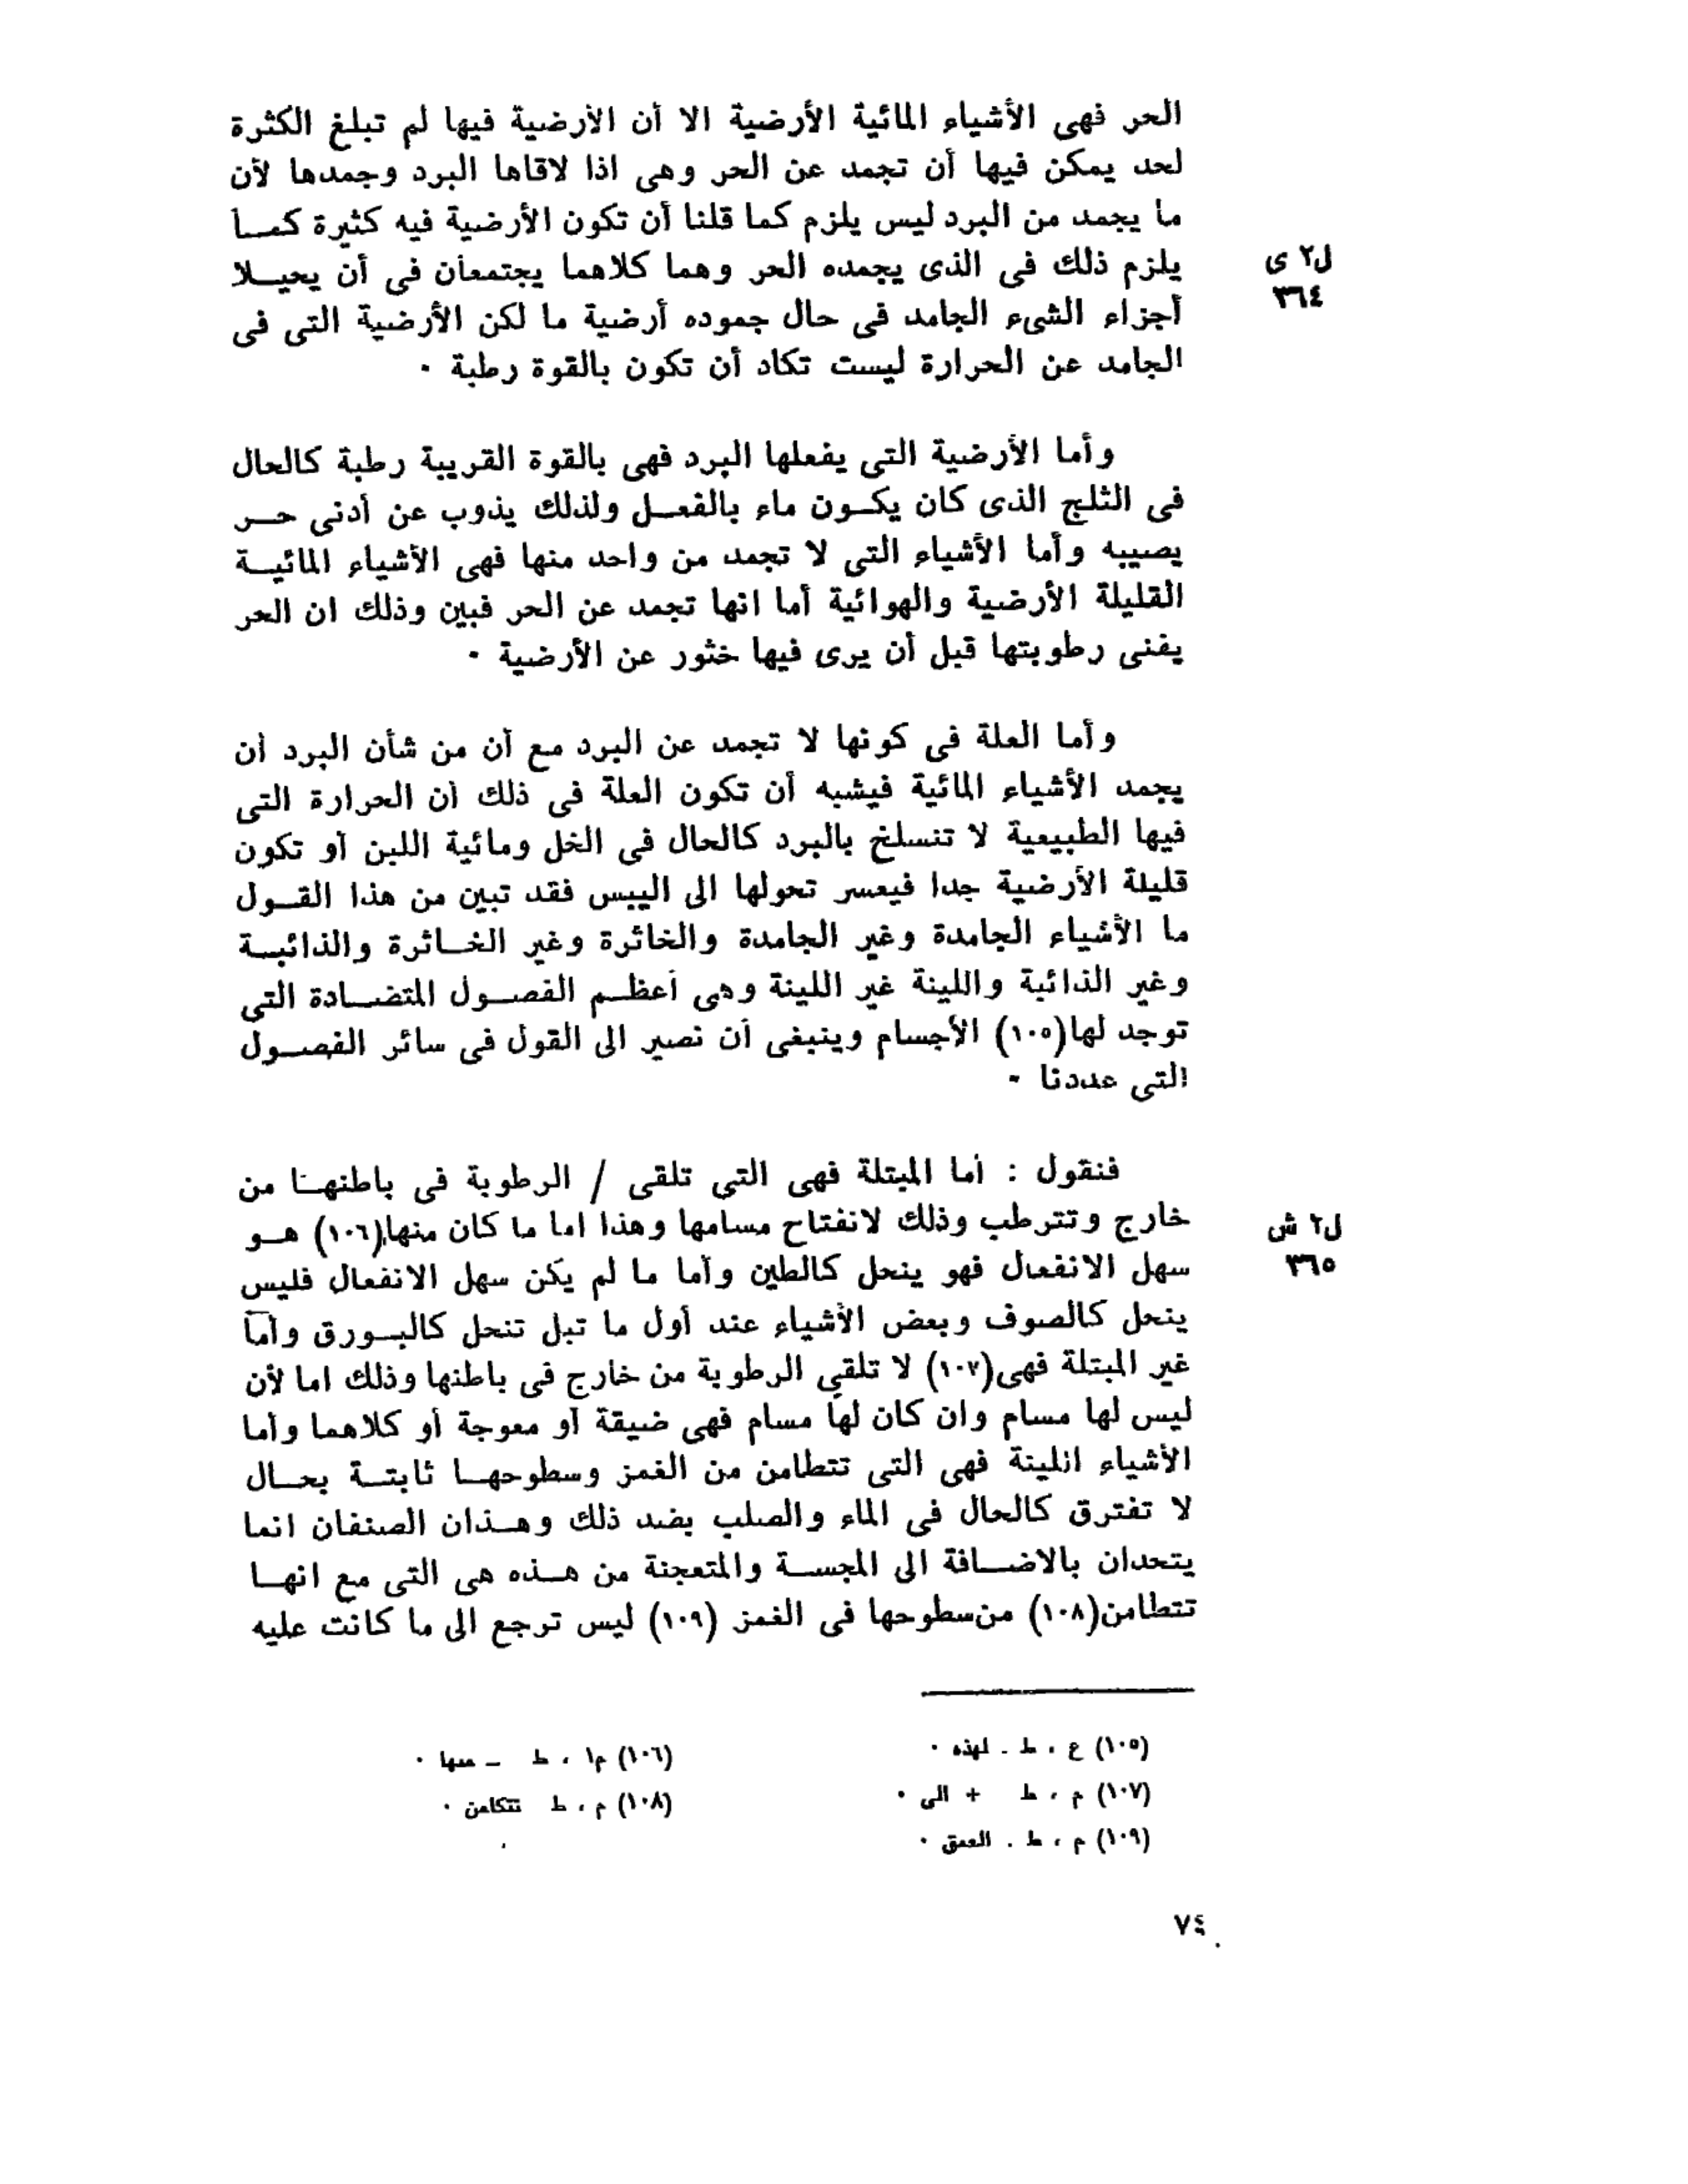 الحر فهى الأشياء المائية الأرضية الا أن الأرضية فيها لم تبلغ الكثرة
لحد يمكن فيها أن تجمد عن الحر وهى اذا لاقاها البرد وجمدها لأن
ما يجمد من البرد ليس يلزم كما قلنا أن تكون الأرضية فيه كثيرة كما
يلزم ذلك فى الذى يجمده الحر وهما كلاهما يجتمعان فى أن يحيلا
ل٢ ى
٣٦٤
أجزاء الشىء الجامد فى حال جموده أرضية ما لكن الأرضية التى فى
الجامد عن الحرارة ليست تكاد أن تكون بالقوة رطبة ٠
وأما الأرضية التى يفعلها البرد فهى بالقوة القريبة رطبة كالحال
فى الثلج الذى كان يكون ماء بالفعل ولذلك يذوب عن أدنى حر
يصيبه وأما الأشياء التى لا تجمد من واحد منها فهى الأشياء المائية
القليلة الأرضية والهوائية أما انها تجمد عن الحر فبين وذلك ان الحر
يفنى رطوبتها قبل أن يرى فيها خثور عن الأرضية ٠
وأما العلة فى كونها لا تجمد عن البرد مع أن من شأن البرد أن
يجمد الأشياء المائية فيشبه أن تكون العلة فى ذلك أن الحرارة التى
فيها الطبيعية لا تنسلخ بالبرد كالحال فى الخل ومائية اللبن أو تكون
قليلة الأرضية جدا فيعسر تحولها الى اليبس فقد تبين من هذا القول
ما الأشياء الجامدة وغير الجامدة والخاثرة وغير الخاثرة والذائبة
وغير الذائبة واللينة غير اللينة وهى أعظم الفصول المتضادة التى
توجد لها(١٠٥) الأجسام وينبغى أن نصير الى القول فى سائر الفصول
التى عددنا ٠
فنقول : أما المبتلة فهى التى تلقى / الرطوبة فى باطنها من
خارج وتترطب وذلك لانفتاح مسامها وهذا اما ما كان منها(١٠٦) هو
ل٢ ش
٣٦٥
سهل الانفعال فهو ينحل كالطين وأما ما لم يكن سهل الانفعال فليس
ينحل كالصوف وبعض الأشياء عند أول ما تبل تنحل كالبورق وأما
غير المبتلة فهى(١٠٧) لا تلقى الرطوبة من خارج فى باطنها وذلك اما لأن
ليس لها مسام وان كان لها مسام فهى ضيقة أو معوجة أو كلاهما وأما
الأشياء اللينة فهى التى تتطامن من الغمز وسطوحها ثابتة بحال
لا تفترق كالحال فى الماء والصلب بضد ذلك وهذان الصنفان انما
يتحدان بالاضافة الى المجسة والمتعجنة من هذه هى التى مع انها
تتطامن(١٠٨) من سطوحها فى الغمز (١٠٩) ليس ترجع الى ما كانت عليه
(١٠٥) ع ، ط ـ لهذه ٠
(١٠٦) م١ ، ط ـ منها ٠
(١٠٧) م ، ط + الى ٠
(١٠٨) م ، ط تتكامن ٠
(١٠٩) م ، ط ـ العمق ٠
٧٤